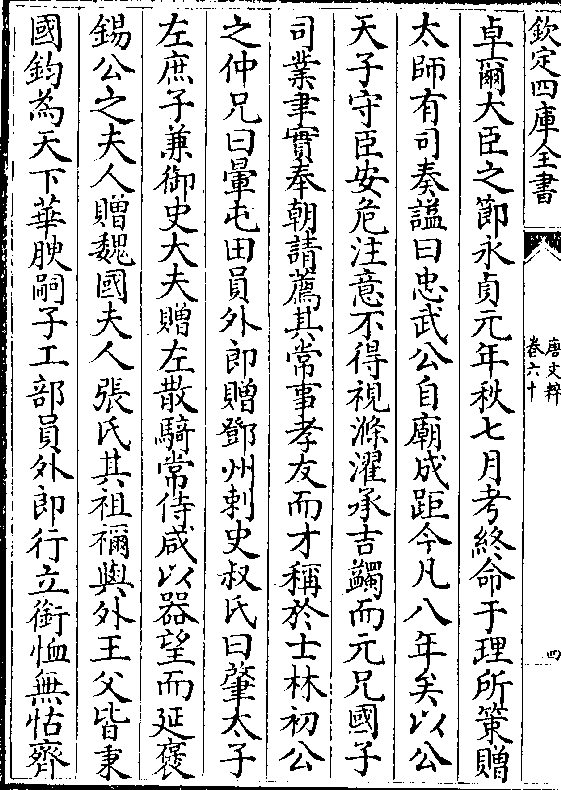 欽定四庫全書
唐文粹
卷六十
四
卓爾大臣之節永貞元年秋七月考終命于理所策贈
太師有司奏諡曰忠武公自廟成距今凡八年矣以公
天子守臣安危注意不得視滌濯承吉蠲而元兄國子
司業聿實奉朝請薦其常事孝友而才稱於士林初公
之仲兄曰暈屯田員外郎贈鄧州刺史叔氏曰肇太子
左庶子兼御史大夫贈左散騎常侍咸以器望而延褒
錫公之夫人贈魏國夫人張氏其祖禰與外王父皆秉
國鈞為天下華腴嗣子工部員外郎行立銜恤無怙齊